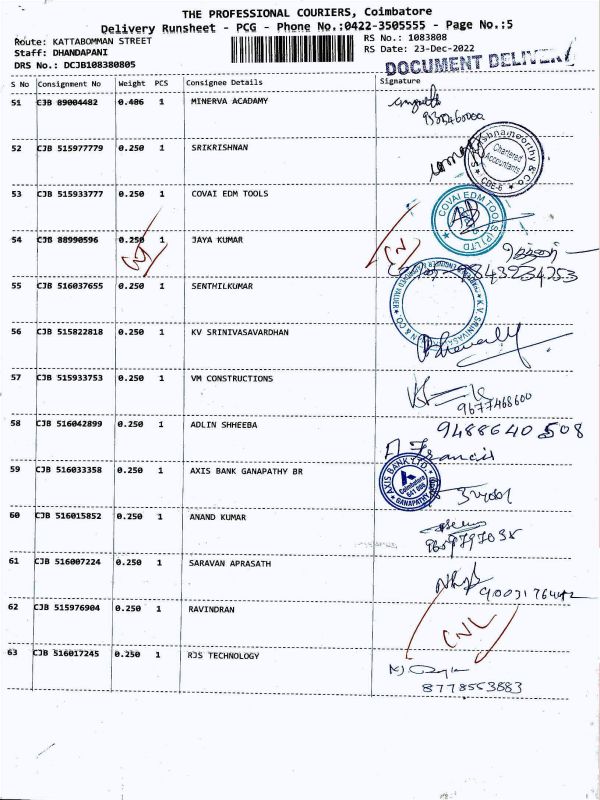 THE PROFESSIONAL COURIERS, Coimbatore
Delivery Runsheet - PCG - Phone No.:0422-3505555 - Page No.:5
Route: KATTABOMMAN STREET
Staff: DHANDAPANI
DRS No.: DCJB108380805
RS No.: 1083808
RS Date: 23-Dec-2022
DOCUMENT DELIVERY
S No Consignment No Weight PCS Consignee Details Signature
51 CJB 89004482 0.486 1 MINERVA ACADAMY
52 CJB 515977779 0.250 1 SRIKRISHNAN
Chartered Accountants
CBE-6
53 CJB 515933777 0.250 1 COVAI EDM TOOLS
COVAI EDM TOOLS (P) LTD
54 CJB 88990596 0.250 1 JAYA KUMAR
55 CJB 516037655 0.250 1 SENTHILKUMAR
56 CJB 515822818 0.250 1 KV SRINIVASAVARDHAN
57 CJB 515933753 0.250 1 VM CONSTRUCTIONS
9677468600
58 CJB 516042899 0.250 1 ADLIN SHHEEBA
9488640508
A Francis
59 CJB 516033358 0.250 1 AXIS BANK GANAPATHY BR
AXIS BANK LTD.
Coimbatore
GANAPATHY
60 CJB 516015852 0.250 1 ANAND KUMAR
61 CJB 516007224 0.250 1 SARAVAN APRASATH
62 CJB 515976904 0.250 1 RAVINDRAN
CNL
63 CJB 516017245 0.250 1 RJS TECHNOLOGY
8778553883